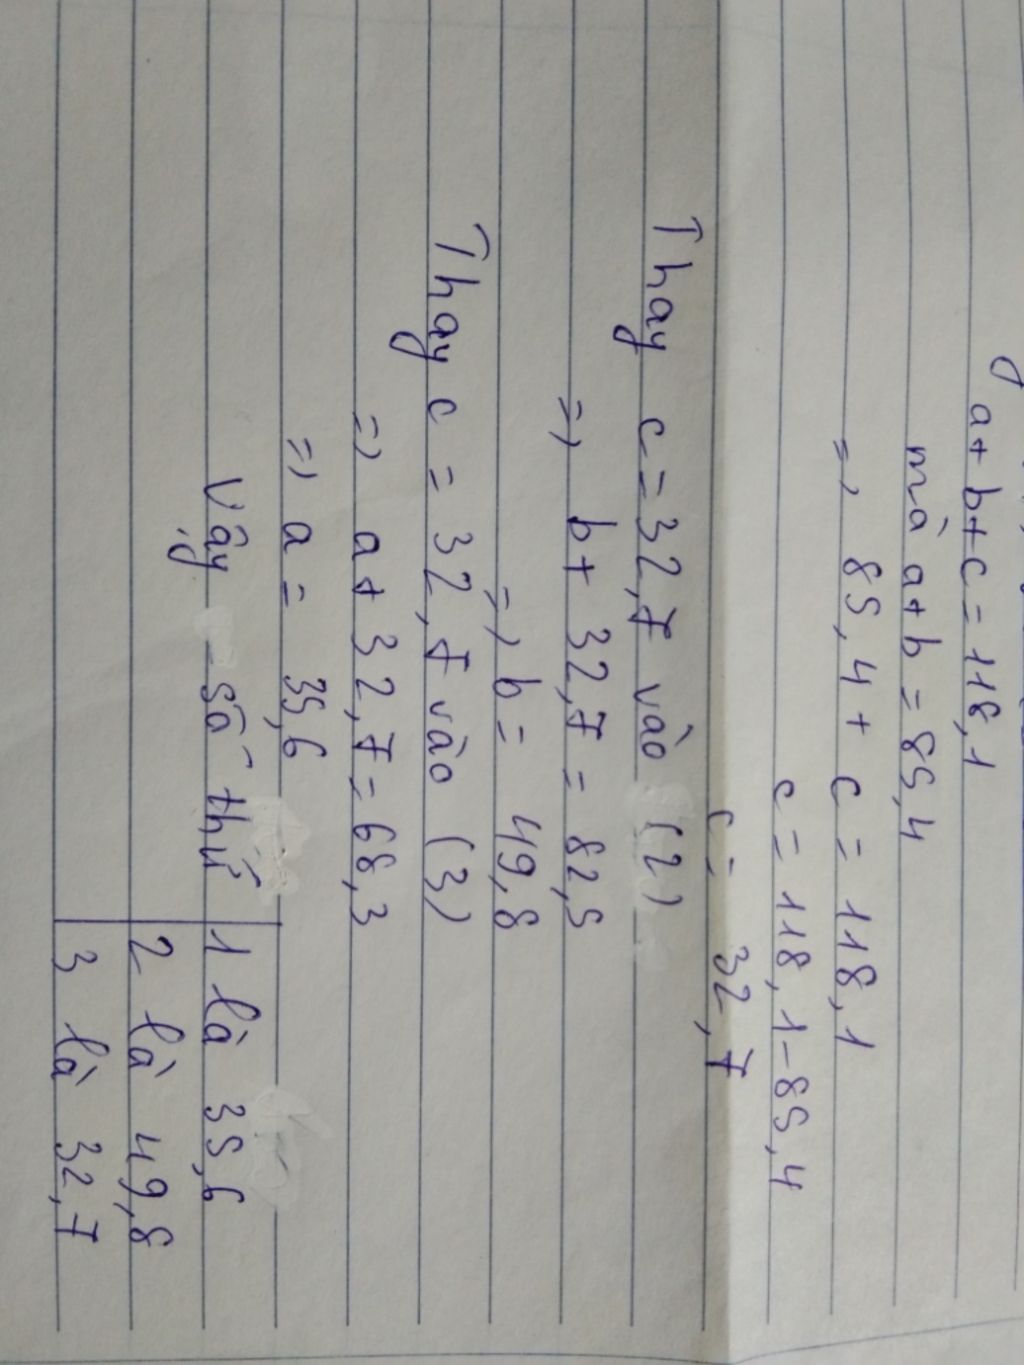 a+ b+c = 118,1
mà a+b = 85,4
=> 85,4 + c = 118,1
c = 118,1-85,4
c = 32,7
Thay c = 32,7 vào (2)
=> b+ 32,7 = 82,5
=> b = 49,8
Thay c = 32,7 vào (3)
=> a+ 32,7 = 68,3
=> a = 35,6
Vậy số thứ 1 là 35,6
2 là 49,8
3 là 32,7